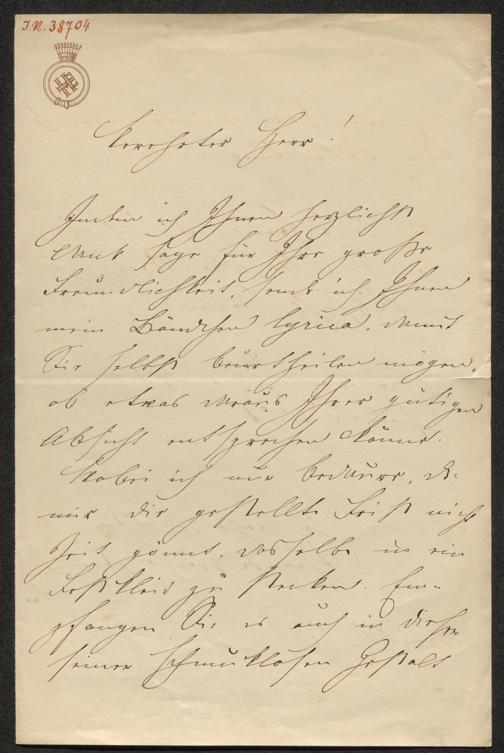 I.N. 38704
Verehrter Herr!
Indem ich Ihnen herzlichst
Dank sage für Ihre große
Freundlichkeit, sende ich Ihnen
mein Bändchen Lyrica, damit
Sie selbst beurtheilen mögen,
ob etwas daraus Ihrer gütigen
Absicht entsprechen könne.
Wobei ich nur bedaure, daß
mir die gestellte Frist nicht
Zeit gönnt, dasselbe in ein
Festkleid zu stecken. Em-
pfangen Sie es auch in dieser
seiner schmucklosen Gestalt